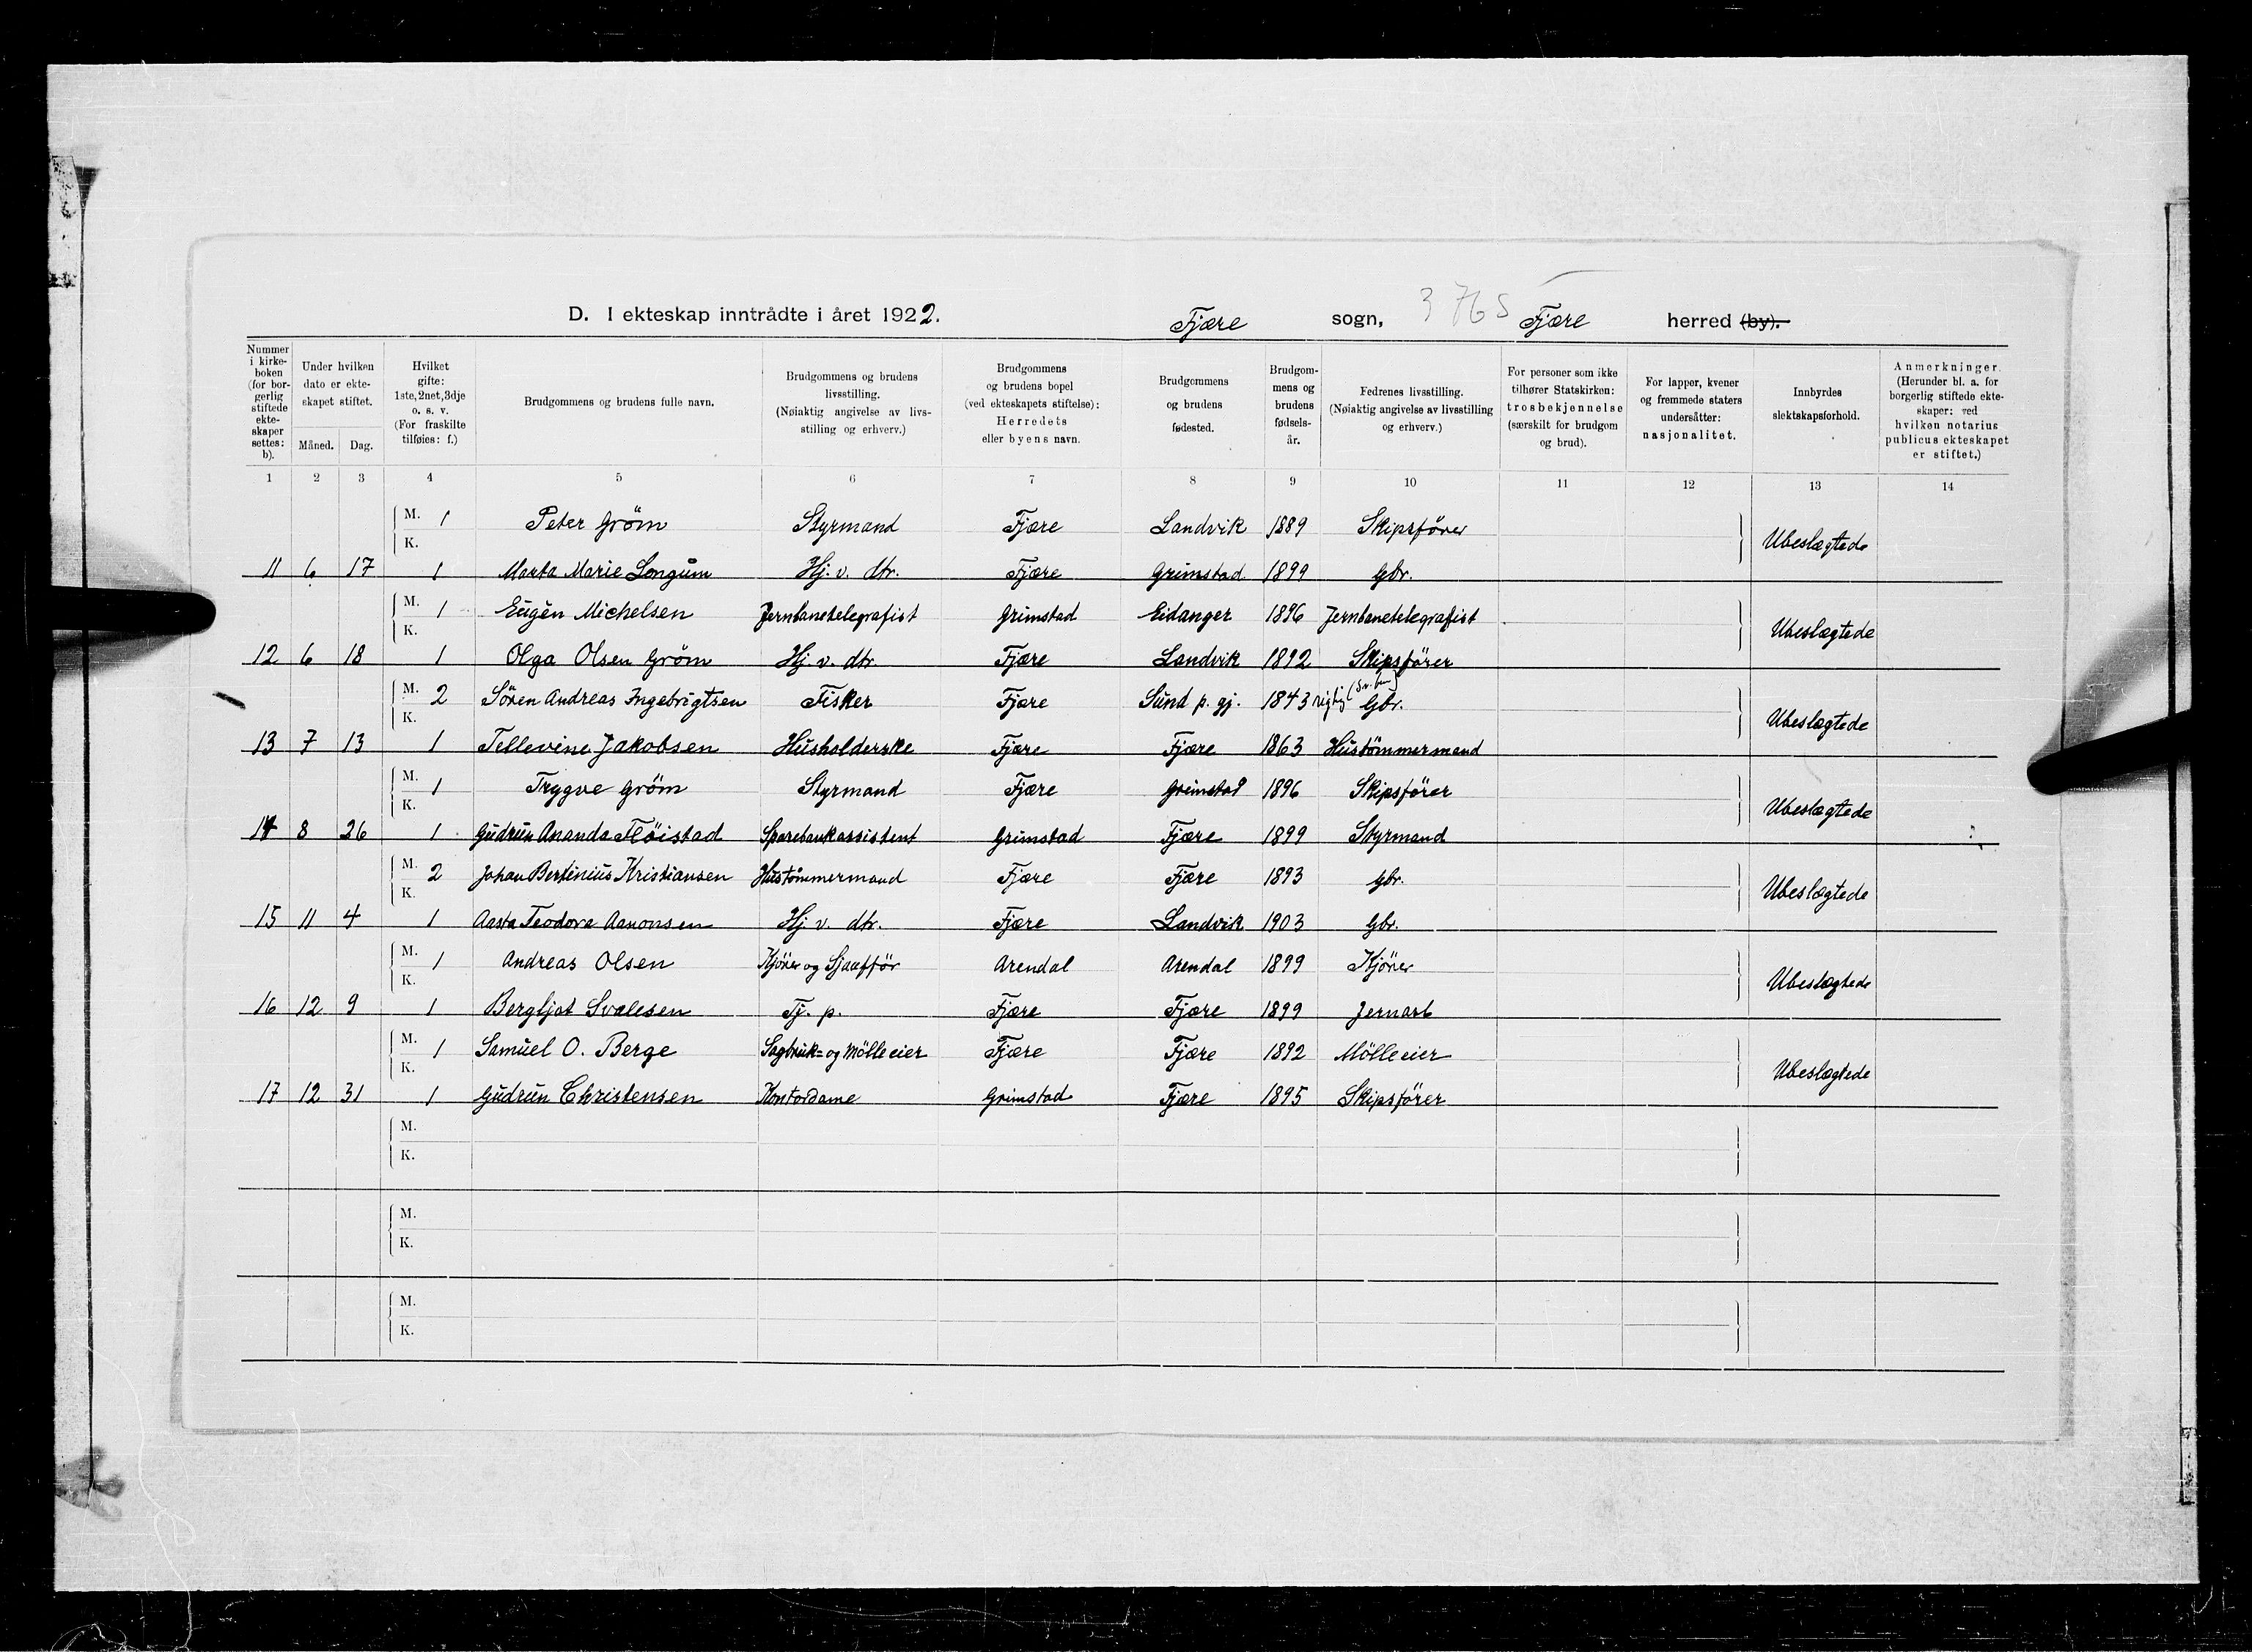 D. I ekteskap inntrådte i året 1922. Fjære sogn, 3765 Fjære herred (by).
Nummer i kirkeboken (for borgerlig stiftede ekteskaper settes: b). Under hvilken dato er ekteskapet stiftet. Måned. Dag. Hvilket gifte: 1ste, 2net, 3dje o. s. v. (For fraskilte tilføies: f.) Brudgommens og brudens fulle navn. Brudgommens og brudens livsstilling. (Nøiaktig angivelse av livsstilling og erhverv.) Brudgommens og brudens bopel (ved ekteskapets stiftelse): Herredets eller byens navn. Brudgommens og brudens fødested. Brudgommens og brudens fødselsår. Fedrenes livsstilling. (Nøiaktig angivelse av livsstilling og erhverv.) For personer som ikke tilhører Statskirken: trosbekjennelse (særskilt for brudgom og brud). For lapper, kvener og fremmede staters undersåtter: nasjonalitet. Innbyrdes slektskapsforhold. Anmerkninger. (Herunder bl. a. for borgerlig stiftede ekteskaper: ved hvilken notarius publicus ekteskapet er stiftet.)
1 2 3 4 5 6 7 8 9 10 11 12 13 14
M. 1 Peter Gröm Styrmand Fjære Landvik 1889 Skipsförer Ubeslægtede
K.
11 6 17 1 Marta Marie Longum Hj. v. dtr. Fjære Grimstad 1899 Gbr.
M. 1 Eugèn Michelsen Jernbanetelegrafist Grimstad Eidanger 1896 Jernbanetelegrafist Ubeslægtede
K.
12 6 18 1 Olga Olsen Gröm Hj. v. dtr. Fjære Landvik 1892 Skipsförer
M. 2 Sören Andreas Ingebrigtsen Fisker Fjære Sund p. gj. 1843 rigtig Gbr. Ubeslægtede
K.
13 7 13 1 Tellevine Jakobsen Husholderske Fjære Fjære 1863 Hustömmermand
M. 1 Trygve Gröm Styrmand Fjære Grimstad 1896 Skipsförer Ubeslægtede
K.
14 8 26 1 Gudrun Ananda Flöistad Sparebankassistent Grimstad Fjære 1899 Styrmand
M. 2 Johan Bertinius Kristiansen Hustömmermand Fjære Fjære 1893 Gbr. Ubeslægtede
K.
15 11 4 1 Aasta Teodora Aanonsen Hj. v. dtr. Fjære Landvik 1903 Gbr.
M. 1 Andreas Olsen Kjörer og Sjaafför Arendal Arendal 1899 Kjörer Ubeslægtede
K.
16 12 9 1 Bergljot Svalesen Tj. p. Fjære Fjære 1899 Jernarb
M. 1 Samuel O. Berge Sagbruk- og Mölleeier Fjære Fjære 1892 Mölleeier Ubeslægtede
K.
17 12 31 1 Gudrun Christensen Kontordame Grimstad Fjære 1895 Skipsförer
M.
K.
M.
K.
M.
K.